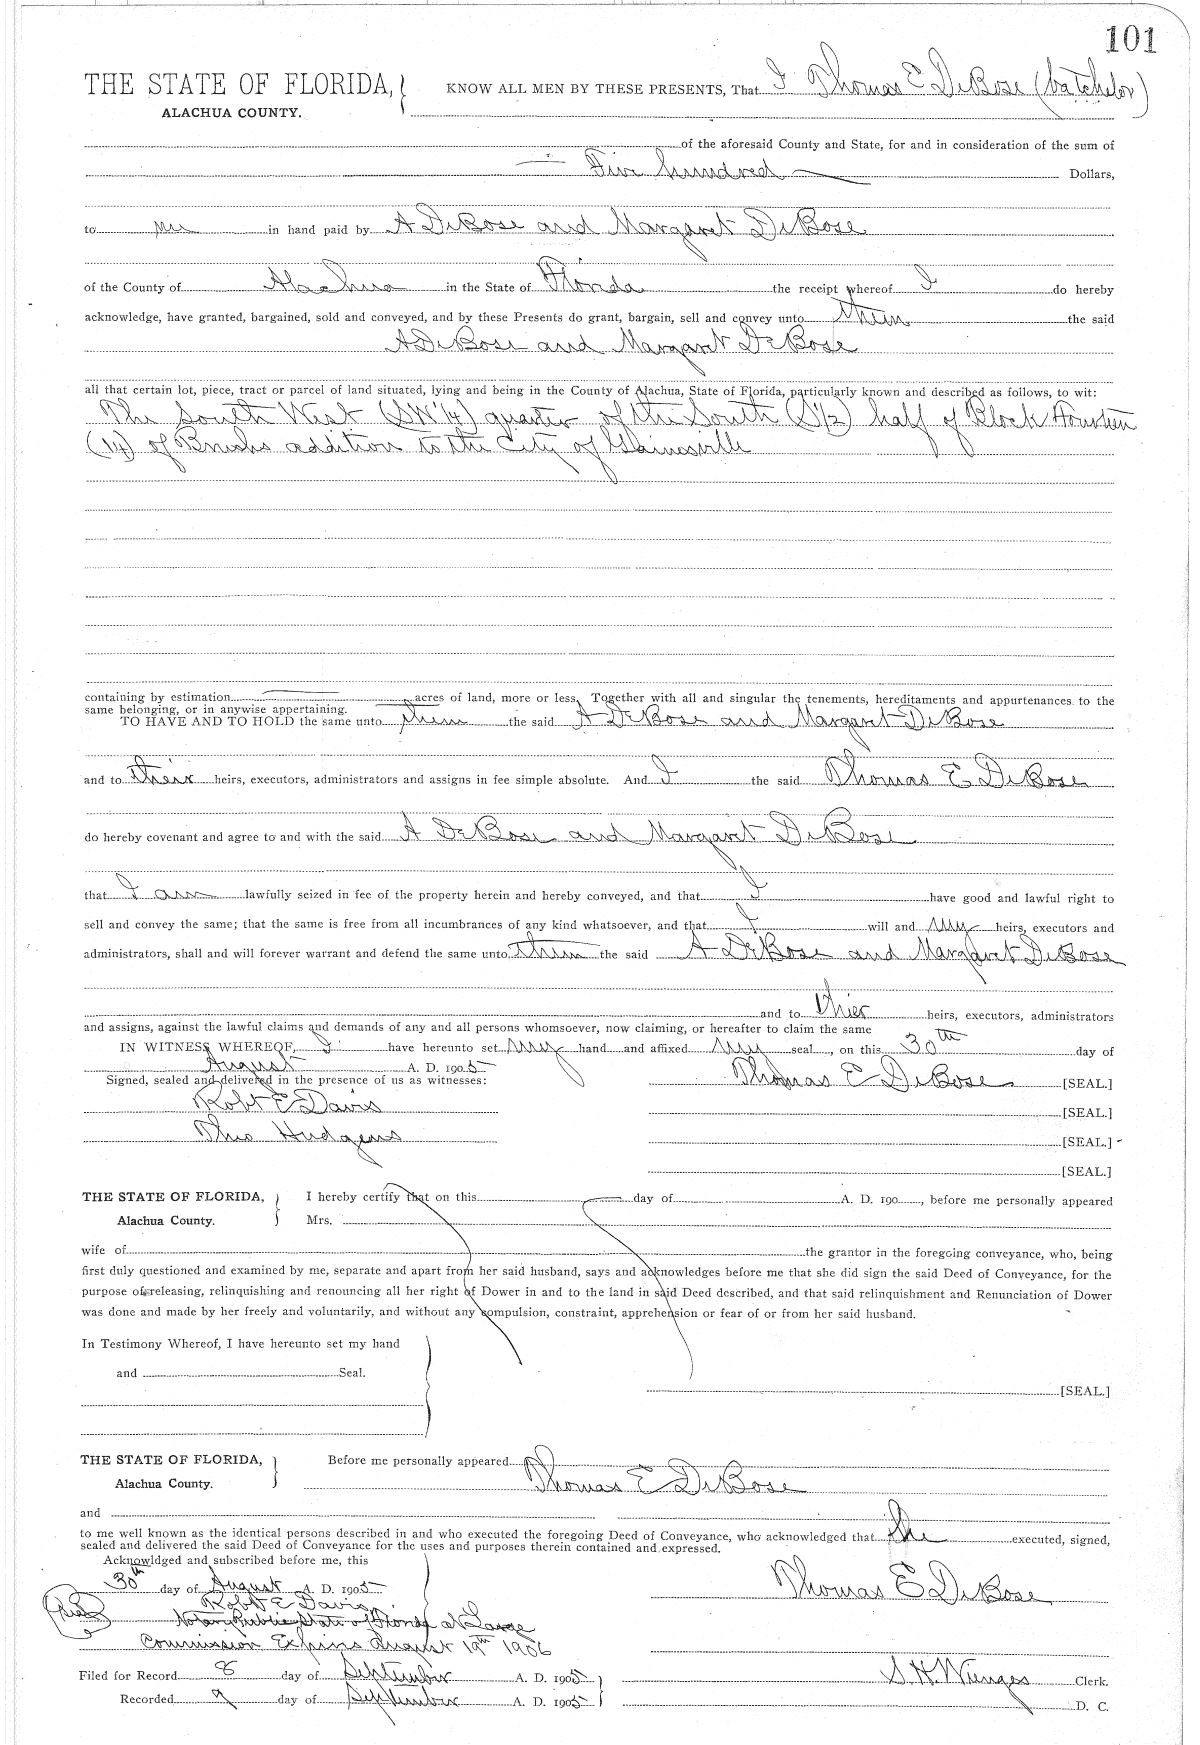 101
THE STATE OF FLORIDA, KNOW ALL MEN BY THESE PRESENTS, That I Thomas E DeBose (batchelor)
ALACHUA COUNTY.
of the aforesaid County and State, for and in consideration of the sum of
Five hundred Dollars,
to me in hand paid by A DeBose and Margaret DeBose
of the County of Alachua in the State of Florida the receipt whereof I do hereby
acknowledge, have granted, bargained, sold and conveyed, and by these Presents do grant, bargain, sell and convey unto them the said
A DeBose and Margaret DeBose
all that certain lot, piece, tract or parcel of land situated, lying and being in the County of Alachua, State of Florida, particularly known and described as follows, to wit:
The South West (SW 1/4) quarter of the South (S 1/2) half of Block Fourteen
(14) of Brushs addition to the City of Gainesville
containing by estimation acres of land, more or less, Together with all and singular the tenements, hereditaments and appurtenances to the
same belonging, or in anywise appertaining.
TO HAVE AND TO HOLD the same unto them the said A DeBose and Margaret DeBose
and to their heirs, executors, administrators and assigns in fee simple absolute. And I the said Thomas E DeBose
do hereby covenant and agree to and with the said A DeBose and Margaret DeBose
that I am lawfully seized in fee of the property herein and hereby conveyed, and that I have good and lawful right to
sell and convey the same; that the same is free from all incumbrances of any kind whatsoever, and that I will and my heirs, executors and
administrators, shall and will forever warrant and defend the same unto them the said A DeBose and Margaret DeBose
and to thier heirs, executors, administrators
and assigns, against the lawful claims and demands of any and all persons whomsoever, now claiming, or hereafter to claim the same
IN WITNESS WHEREOF, I have hereunto set my hand and affixed my seal, on this 30th day of
August A. D. 1905 Thomas E DeBose [SEAL.]
Signed, sealed and delivered in the presence of us as witnesses:
Robt E Davis [SEAL.]
Theo Hudgens [SEAL.]
[SEAL.]
THE STATE OF FLORIDA, I hereby certify that on this day of A. D. 190, before me personally appeared
Alachua County. Mrs.
wife of the grantor in the foregoing conveyance, who, being
first duly questioned and examined by me, separate and apart from her said husband, says and acknowledges before me that she did sign the said Deed of Conveyance, for the
purpose of releasing, relinquishing and renouncing all her right of Dower in and to the land in said Deed described, and that said relinquishment and Renunciation of Dower
was done and made by her freely and voluntarily, and without any compulsion, constraint, apprehension or fear of or from her said husband.
In Testimony Whereof, I have hereunto set my hand
and Seal.
[SEAL.]
THE STATE OF FLORIDA, Before me personally appeared Thomas E DeBose
Alachua County.
and
to me well known as the identical persons described in and who executed the foregoing Deed of Conveyance, who acknowledged that he executed, signed,
sealed and delivered the said Deed of Conveyance for the uses and purposes therein contained and expressed.
Acknowldged and subscribed before me, this
30th day of August A. D. 1905 Thomas E DeBose
Robt E Davis
Seal Notary Public State of Florida at Large
Commission Expires August 19th 1906
Filed for Record 8 day of September A. D. 1905 S. H. Wienges Clerk.
Recorded 9 day of September A. D. 1905 D. C.